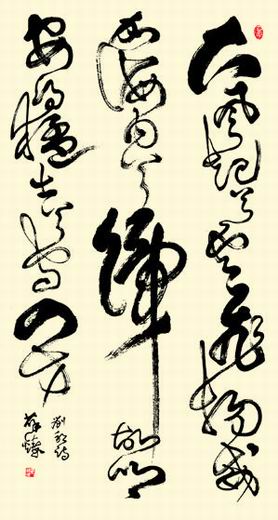 大風起兮雲飛揚威
加海內兮歸故鄉
安得猛士兮守四方
劉邦詩